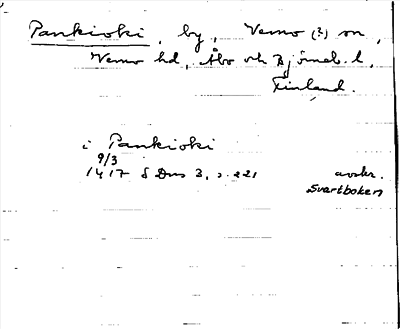 Pankioki, by, Vemo (?) sn,
Vemo hd, Åbo och Björneb. l,
Finland.
i Pankioki
9/3
1417 S Dns 3, s. 221 avskr.
Svartboken